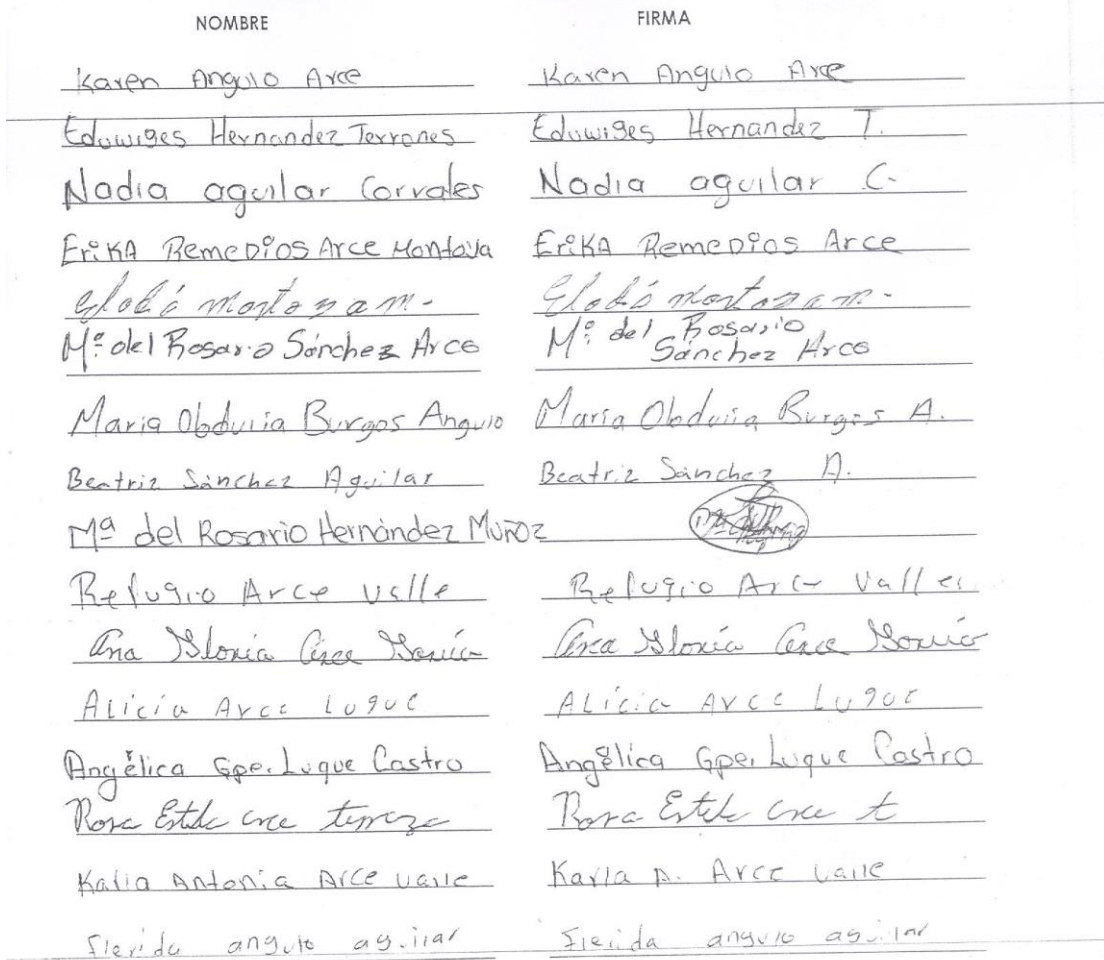 NOMBRE FIRMA
Karen Angulo Arce Karen Angulo Arce
Eduwiges Hernandez Terrones Eduwiges Hernandez T.
Nadia aguilar Corrales Nadia aguilar C.
Erika Remedios Arce Montoya Erika Remedios Arce
montoya m. montoya m.
Mª del Rosario Sánchez Arce Mª del Rosario Sánchez Arce
Maria Obdulia Burgos Angulo Maria Obdulia Burgos A.
Beatriz Sánchez Aguilar Beatriz Sánchez A.
Mª del Rosario Hernández Muñoz
Refugio Arce Valle Refugio Arce Valle
Ana Gloria Arce Ana Gloria Arce
Alicia Arce Luque Alicia Arce Luque
Angélica Gpe. Luque Castro Angélica Gpe. Luque Castro
Rosa Estela Arce Rosa Estela Arce t
Karla Antonia Arce Valle Karla A. Arce Valle
angulo aguilar angulo aguilar